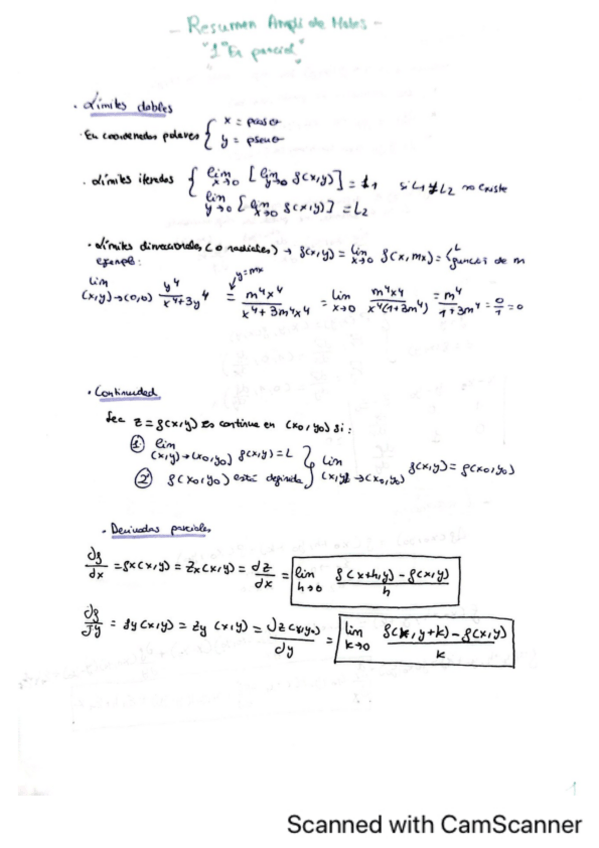 - Resumen Ampli de Mates -
"1er Ex parcial"
· Límites dobles
· En coordenadas polares { x = ρcosθ
y = ρsenθ
· Límites iterados { lim x→0 [lim y→0 f(x,y)] = L1 si L1 ≠ L2 no existe
lim y→0 [lim x→0 f(x,y)] = L2
· Límites direccionales (o radiales) → f(x,y) = lim x→0 f(x,mx) = { L
función de m
ejemplo:
y=mx
lim (x,y)→(0,0) y⁴/x⁴+3y⁴ = m⁴x⁴/x⁴+3m⁴x⁴ = lim x→0 m⁴x⁴/x⁴(1+3m⁴) = m⁴/1+3m⁴ = 0/1 = 0
· Continuidad
Sea z = f(x,y) es continua en (x0,y0) si:
① lim (x,y)→(x0,y0) f(x,y) = L } lim (x,y)→(x0,y0) f(x,y) = f(x0,y0)
② f(x0,y0) está definida
· Derivadas parciales
∂f/∂x = fx(x,y) = Zx(x,y) = dz/dx = lim h→0 f(x+h,y) - f(x,y)/h
∂f/∂y = fy(x,y) = Zy(x,y) = ∂z(x,y)/∂y = lim k→0 f(x,y+k) - f(x,y)/k
1
Scanned with CamScanner